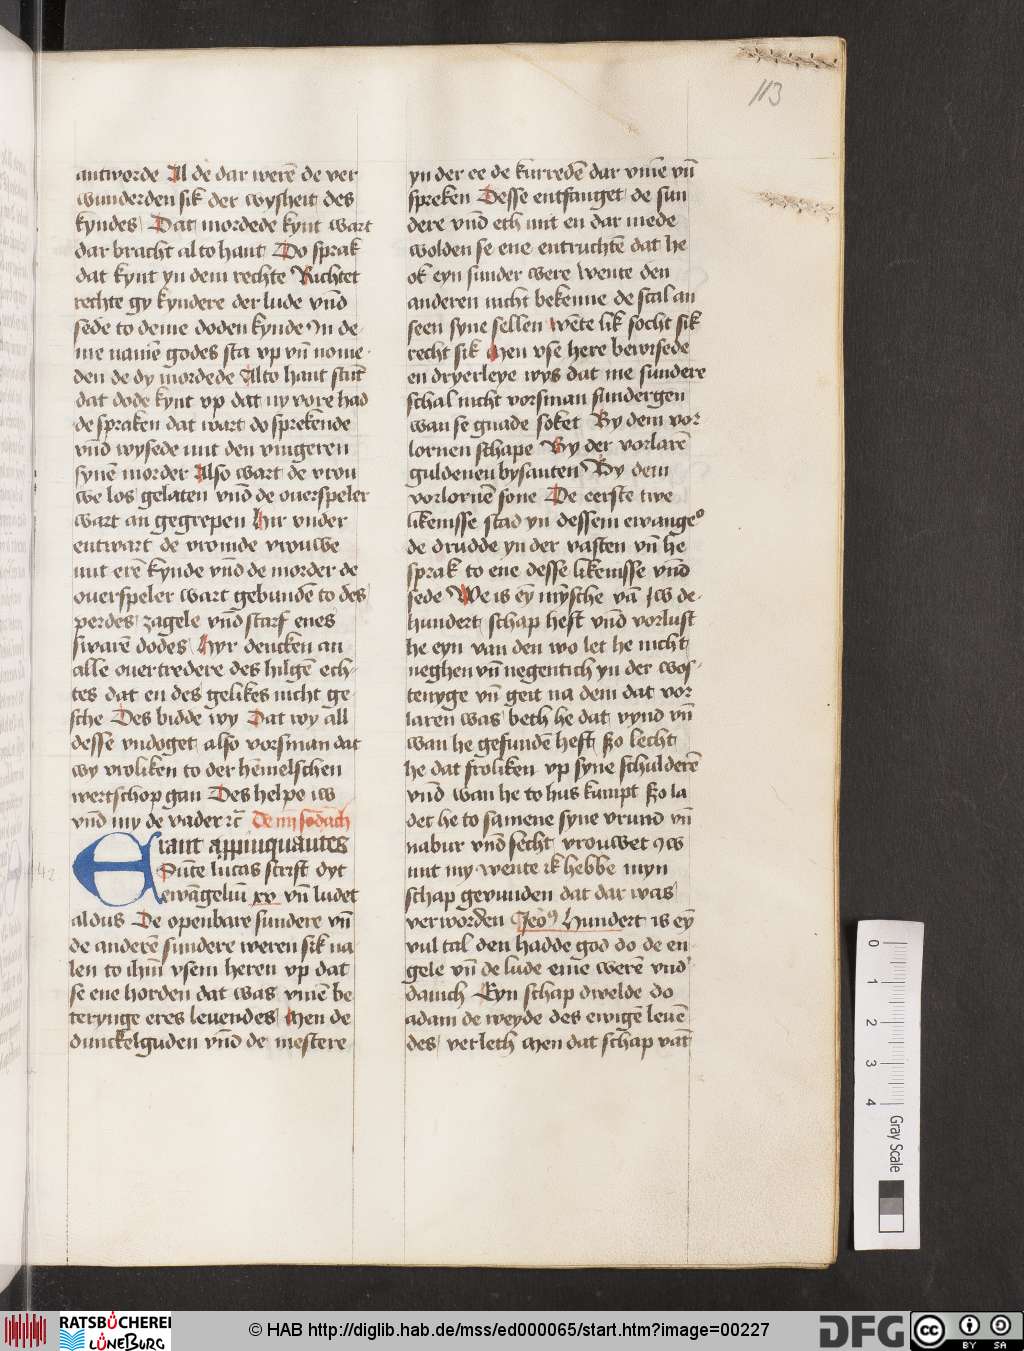 113
antworde Al de dar werē de ver
wunderden sik der wysheit des
kyndes Dat mordede kynt wart
dar bracht al to hant Do sprak
dat kynt yn dem rechte Richtet
rechte gy kyndere der lude vn̄d
sede to deme doden kynde In de-
me namē godes sta vp vn̄ nome-
den de dy mordede Alto hant stūt
dat dode kynt vp dat ny vore had
de spraken dat wart do sprekende
vn̄d wysede mit den vingeren
synē morder Also wart de vrou
we los gelaten vn̄d de ouerspeler
wart an gegrepen Hir vnder
entwart de vromde vrouwe
mit erē kynde vn̄d de morder de
ouerspeler wart gebundē to des
perdes zagele vn̄d starf enes
swarē dodes Hyr dencken an
alle ouertredere des hilgē ech-
tes dat en des gelikes nicht ge-
sche Des bidde wy Dat wy all
desse vndoget also vorsman dat
wy vroliken to der hēmelschen
wertschop gan Des helpe iw
vn̄d my de vader rc̄ De iij sōdach
Erant appīnquātes
Sūte lucas scrift dyt
ewāgeliū xv vn̄ ludet
aldus De openbare sundere vn̄
de anderē sundere weren sik na
len to ihm̄ vsem heren vp dat
se ene horden dat was vmē be
terynge eres leuendes Men de
dunckelguden vn̄d de mestere
yn der ee de kurredē dar vmē vn̄
spreken Desse entfanget de sun
dere vn̄d eth mit en dar mede
wolden se ene entruchtē dat he
ok eyn sunder were Wente den
anderen nicht bekenne de scal an
seen syne sellen wēte lik socht sik
recht sik Men vse here bewisede
en dryerleye wys dat me sundere
schal nicht vorsman sundergen
wan se gnade soket By dem vor
lornen schape By der vorlarē
guldenen bysanten By dem
vorlornē sone De eerste twe
likenisse stad yn dessem ewange⁹
de drudde yn der vasten vn̄ he
sprak to ene desse likenisse vn̄d
sede We is eȳ mȳsche vā iw de-
hundert schap heft vn̄d vorlust
he eyn van den wo let he nicht
neghen vn̄ negentich yn der wos-
tenyge vn̄ geit na dem dat vor
laren was beth he dat vynd vn̄
wan he gefundē heft so lecht
he dat froliken vp syne schulderē
vn̄d wan he to hus kumpt so la
det he to samene syne vrund vn̄
nabur vn̄d secht vrouwet iw
mit my wente ik hebbe myn
schap gevunden dat dar was
verworden Jeō⁹ Hundert is eȳ
vul tal den hadde god do de en-
gele vn̄ de lude eme werē vnd'
danich Eyn schap dwelde do
adam de weyde des ewigē leuē
des verleth Men dat schap vāt
0 1 2 3 4
Gray Scale
RATSBÜCHEREI
LÜNEBURG
© HAB http://diglib.hab.de/mss/ed000065/start.htm?image=00227
DFG
cc BY SA